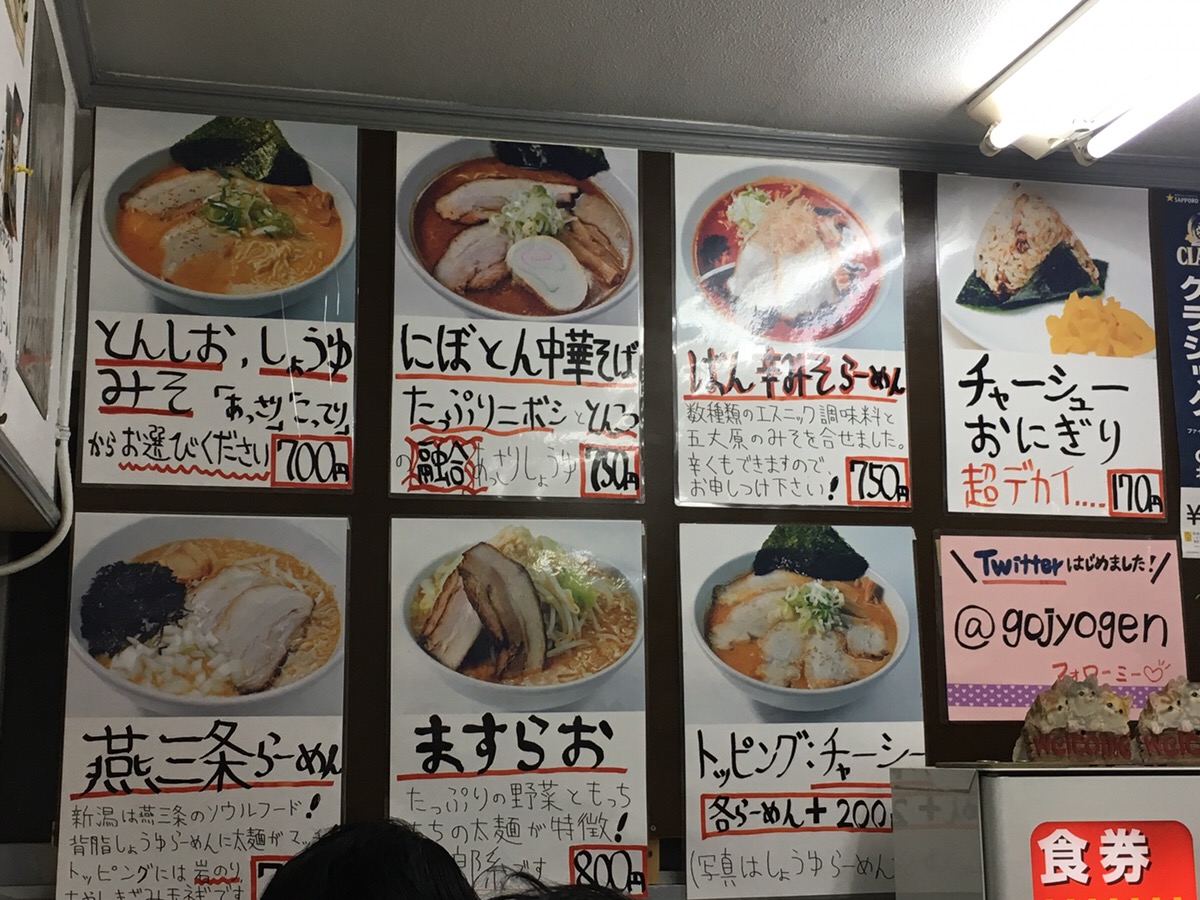 とんしお,しょうゆ
みそ「あっさり」「こってり」
からお選びください 700円
にぼとん中華そば
たっぷりニボシととんこつ
の融合あっさりしょうゆ 750円
ばん辛みそらーめん
数種類のエスニック調味料と
五大原のみそを合せました。
辛くもできますので、
お申しつけ下さい! 750円
チャーシュー
おにぎり
超デカイ.... 170円
SAPPORO
クラシック
Twitterはじめました!
@gojyogen
フォローミー♡
燕三条らーめん
新潟は燕三条のソウルフード!
背脂しょうゆらーめんに太麺がマッ
トッピングには岩のり、
ますらお
たっぷりの野菜ともっち
もちの太麺が特徴!
郎系です 800円
トッピング:チャーシー
各らーめん+200
(写真はしょうゆらーめん
Welcome
食券